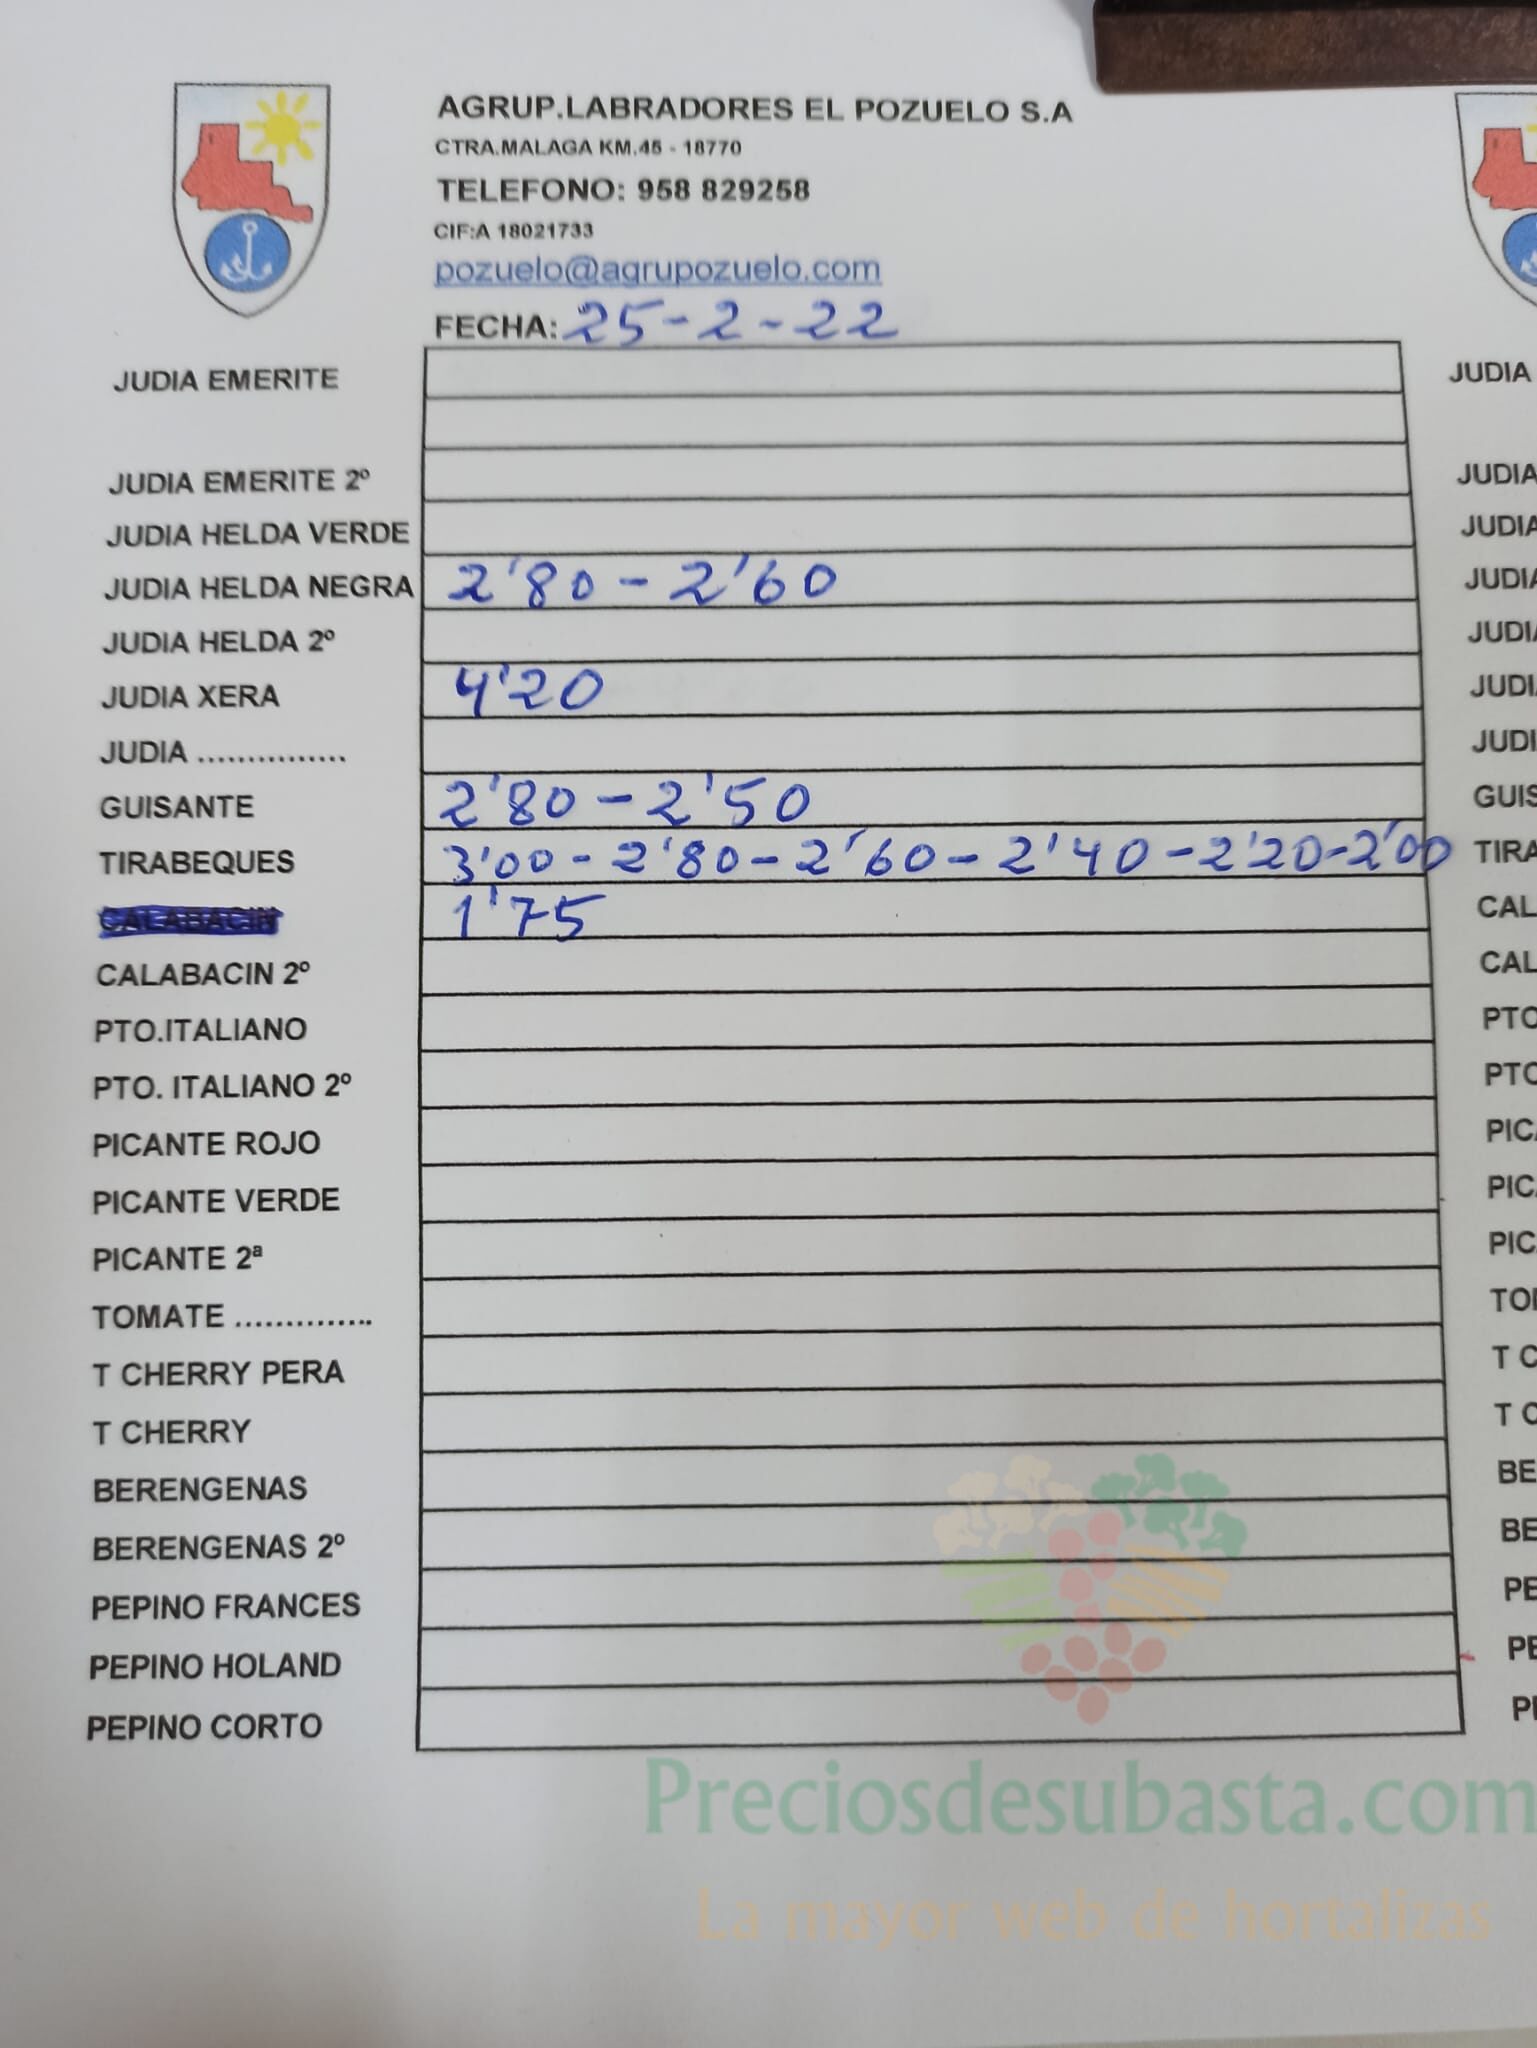 AGRUP.LABRADORES EL POZUELO S.A
CTRA.MALAGA KM.45 - 18770
TELEFONO: 958 829258
CIF:A 18021733
pozuelo@agrupozuelo.com
FECHA: 25-2-22
JUDIA EMERITE JUDIA
JUDIA EMERITE 2º JUDIA
JUDIA HELDA VERDE JUDIA
JUDIA HELDA NEGRA 2'80 - 2'60 JUDIA
JUDIA HELDA 2º JUDIA
JUDIA XERA 4'20 JUDIA
JUDIA ............... JUDI
GUISANTE 2'80 - 2'50 GUIS
TIRABEQUES 3'00 - 2'80 - 2'60 - 2'40 - 2'20 - 2'00 TIRA
CALABACIN 1'75 CAL
CALABACIN 2º CAL
PTO.ITALIANO PTO
PTO. ITALIANO 2º PTO
PICANTE ROJO PIC
PICANTE VERDE PIC
PICANTE 2ª PIC
TOMATE .............. TO
T CHERRY PERA T C
T CHERRY T C
BERENGENAS BE
BERENGENAS 2º BE
PEPINO FRANCES PE
PEPINO HOLAND PE
PEPINO CORTO PE
Preciosdesubasta.com
La mayor web de hortalizas